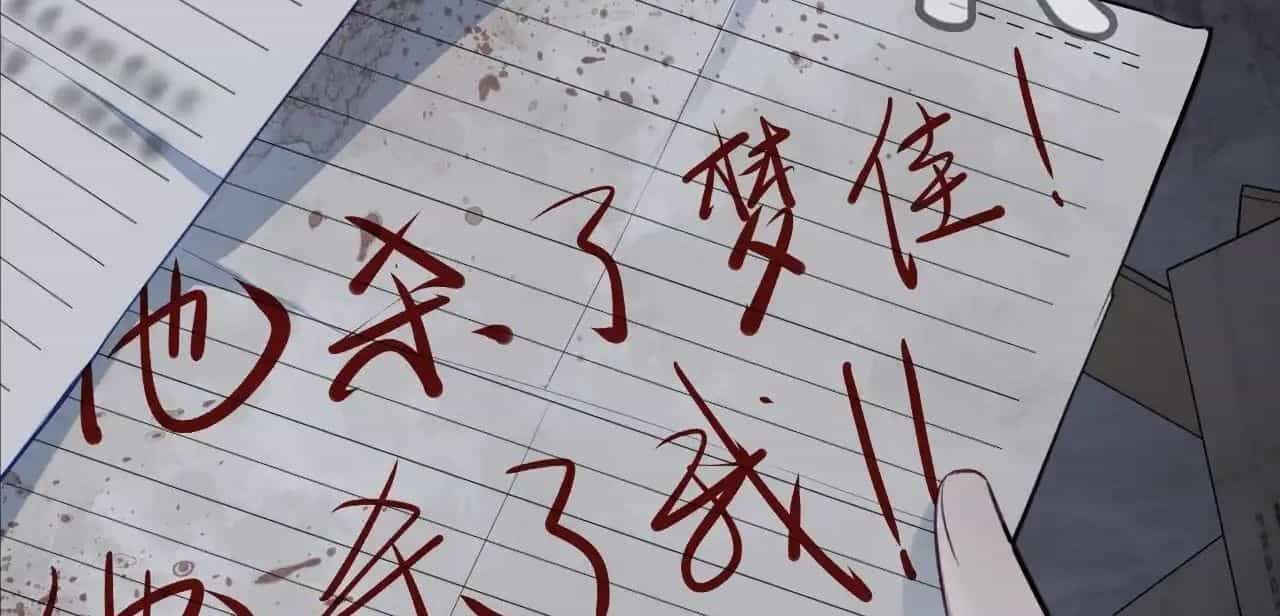 他杀了梦佳!
他杀了我!!